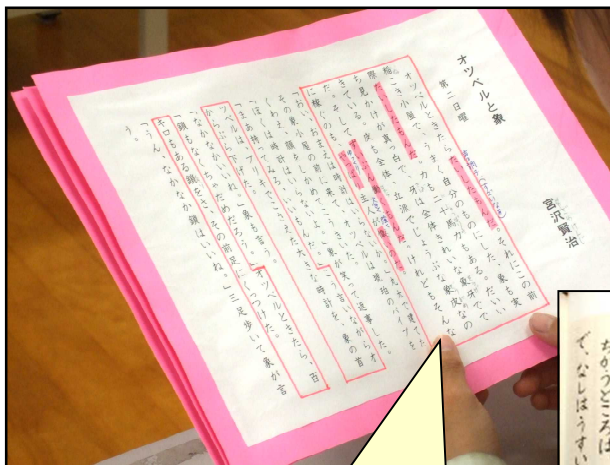 オツベルと象
第二日曜
宮沢賢治
オツベルときたらたいしたもんだ。それにこの前
稲こき小屋で、うまく自分のものにした、象も実
際たいしたもんだ。力も二十馬力もある。だいいち
見かけが真っ白で、牙は全体きれいな象牙でで
きている。皮も全体、立派でじょうぶな象皮なの
だ。そしてずいぶん働くもんだ。けれどもそんな
に稼ぐのも、やっぱり主人が偉いのだ。
「おい、おまえは時計はいらないか。」丸太で建てた
その象小屋の前に来て、オツベルは琥珀のパイプを
くわえ、顔をしかめてこうきいた。
「ぼくは時計はいらないよ。」象が笑って返事した。
「まあ持ってみろ、いいもんだ。」こう言いながらオ
ツベルは、ブリキでこさえた大きな時計を、象の首
からぶら下げた。
「なかなかいいね。」象も言う。
「鎖もなくちゃだめだろう。」オツベルときたら、百
キロもある鎖をさ、その前足にくっつけた。
「うん、なかなか鎖はいいね。」三足歩いて象が言
う。
ところは
で、なしはうすい